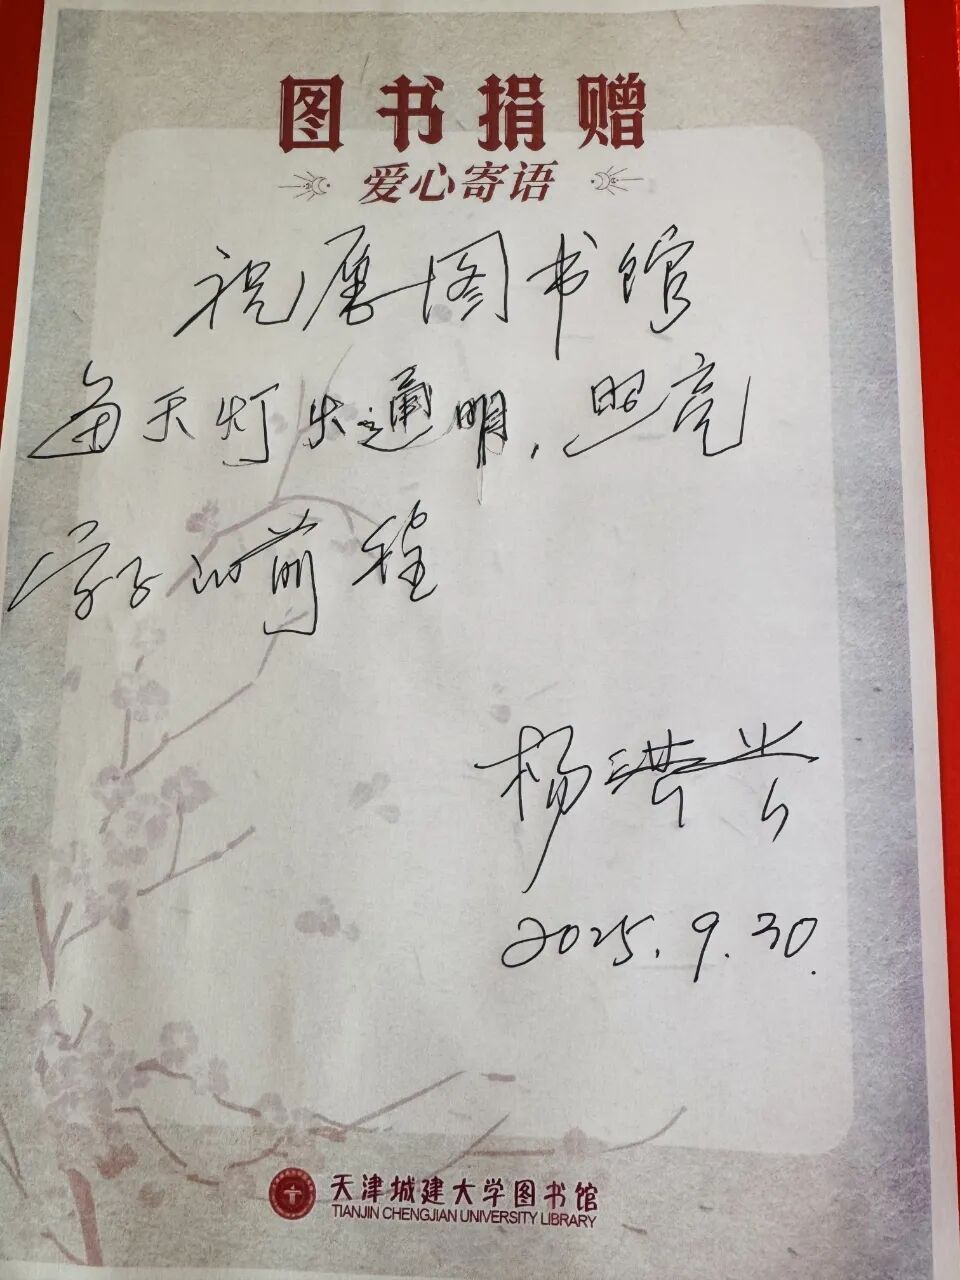 图书捐赠
爱心寄语
祝愿图书馆
每天灯火通明，照亮
学子的前程
杨洪兴
2025.9.30.
天津城建大学图书馆
TIANJIN CHENGJIAN UNIVERSITY LIBRARY